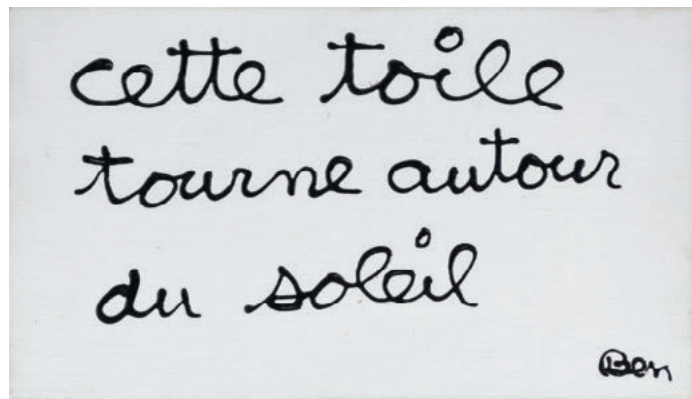 cette toile
tourne autour
du soleil
Ben